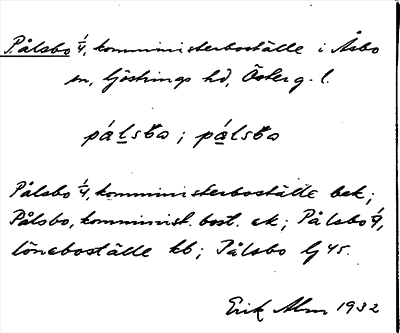 Pålsbo 1/4, komministerboställe i Åsbo
sn, Göstrings hd, Österg. l.
pálsbo; pálsba
Pålsbo 1/4, komministerboställe bek;
Pålsbo, komminist. bost. ek; Pålsbo 1/4,
löneboställe kb; Pålsbo lj 45.
Erik Alm 1932